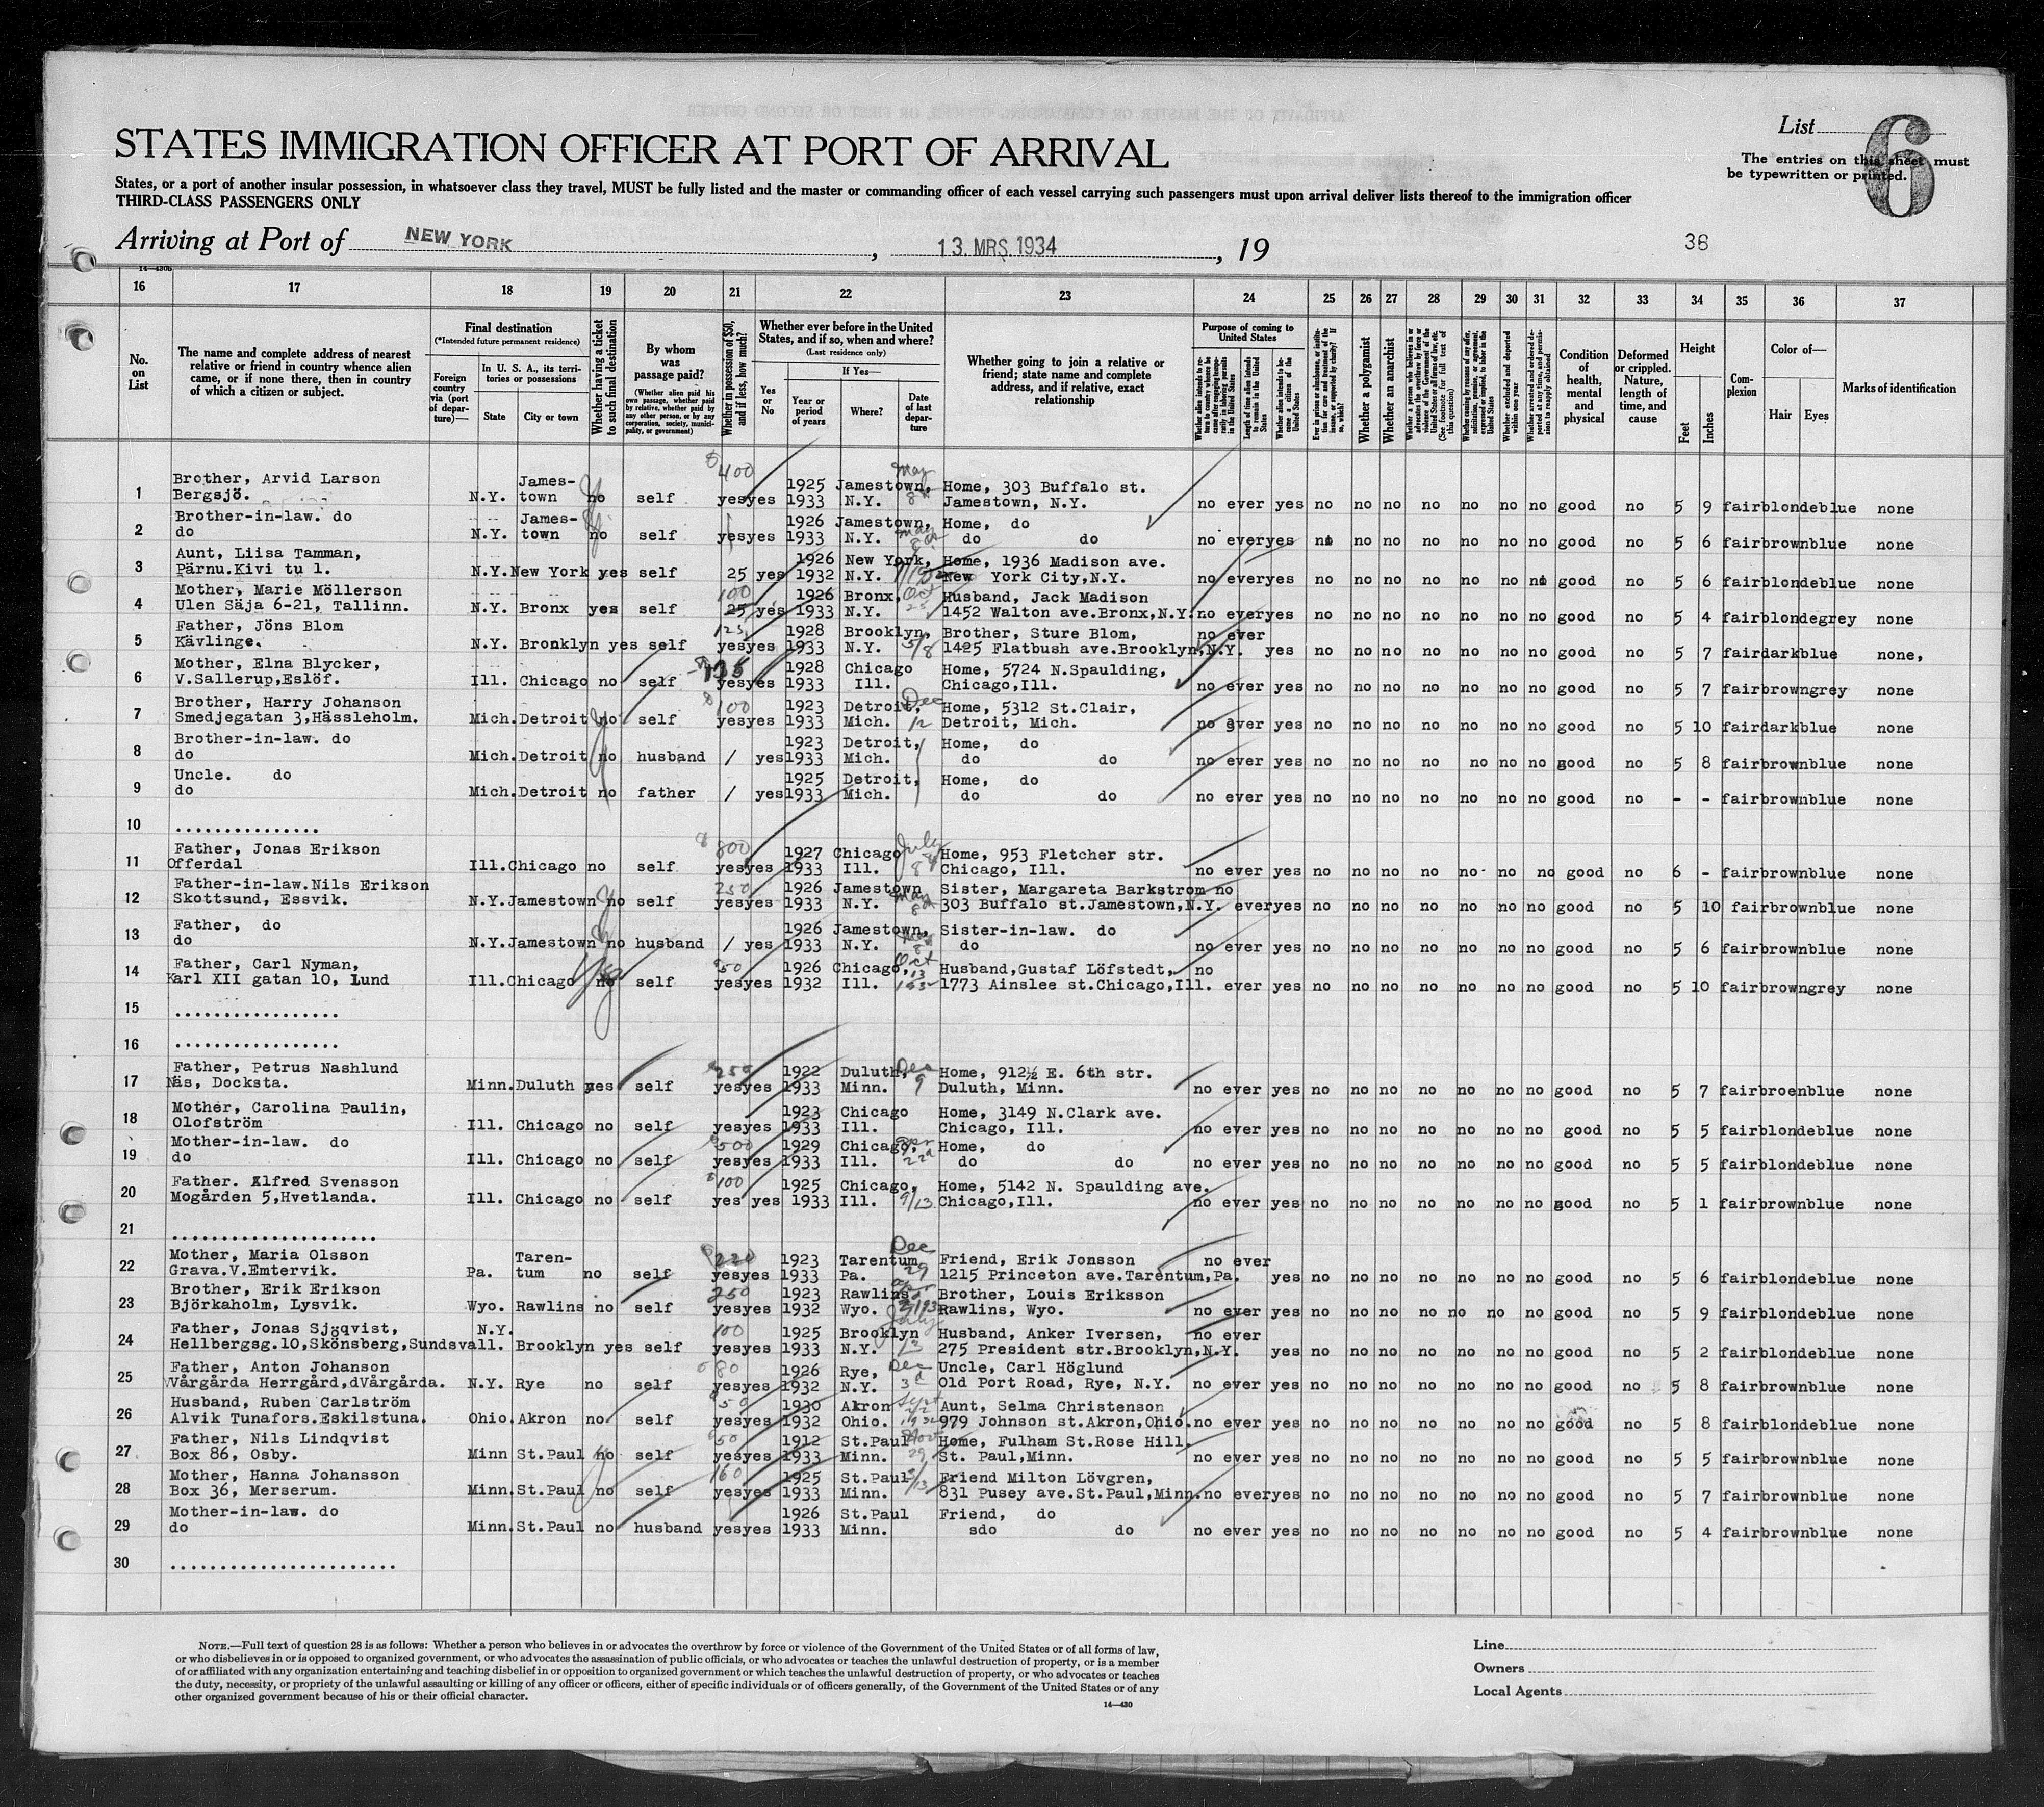 List
6
The entries on this sheet must
be typewritten or printed.
STATES IMMIGRATION OFFICER AT PORT OF ARRIVAL
States, or a port of another insular possession, in whatsoever class they travel, MUST be fully listed and the master or commanding officer of each vessel carrying such passengers must upon arrival deliver lists thereof to the immigration officer
THIRD-CLASS PASSENGERS ONLY
Arriving at Port of NEW YORK, 13. MRS 1934, 19
36
14—430b
16 17 18 19 20 21 22 23 24 25 26 27 28 29 30 31 32 33 34 35 36 37
No. on List
The name and complete address of nearest relative or friend in country whence alien came, or if none there, then in country of which a citizen or subject.
Final destination
(*Intended future permanent residence)
Foreign country via (port of departure)—
In U. S. A., its territories or possessions
State
City or town
Whether having a ticket to such final destination
By whom was passage paid?
(Whether alien paid his own passage, whether paid by relative, whether paid by any other person, or by any corporation, society, municipality, or government)
Whether in possession of $50, and if less, how much?
Whether ever before in the United States, and if so, when and where?
(Last residence only)
Yes or No
If Yes—
Year or period of years
Where?
Date of last departure
Whether going to join a relative or friend; state name and complete address, and if relative, exact relationship
Purpose of coming to United States
Length of time alien intends to remain in the United States
Whether alien intends to become a citizen of the United States
Whether a polygamist
Whether an anarchist
Condition of health, mental and physical
Deformed or crippled. Nature, length of time, and cause
Height
Feet
Inches
Complexion
Color of—
Hair
Eyes
Marks of identification
1 Brother, Arvid Larson James- $400 1925 Jamestown, May Home, 303 Buffalo st.
Bergsjö. N.Y. town no self yes yes 1933 N.Y. 8 Jamestown, N.Y. no ever yes no no no no no no no good no 5 9 fair blonde blue none
2 Brother-in-law. do James- 1926 Jamestown, Home, do
do N.Y. town no self yes yes 1933 N.Y. do do no ever yes no no no no no no no good no 5 6 fair brown blue none
3 Aunt, Liisa Tamman, 1926 New York, Home, 1936 Madison ave.
Pärnu.Kivi tu 1. N.Y. New York yes self 25 yes 1932 N.Y. New York City,N.Y. no ever yes no no no no no no no good no 5 6 fair blonde blue none
4 Mother, Marie Möllerson 100 1926 Bronx, Oct Husband, Jack Madison
Ulen Säja 6-21, Tallinn. N.Y. Bronx yes self 25 yes 1933 N.Y. 25 1452 Walton ave.Bronx,N.Y. no ever yes no no no no no no no good no 5 4 fair blonde grey none
5 Father, Jöns Blom 125 1928 Brooklyn, Brother, Sture Blom, no ever
Kävlinge. N.Y. Bronklyn yes self yes yes 1933 N.Y. 5/8 1425 Flatbush ave.Brooklyn,N.Y. yes no no no no no no no good no 5 7 fair dark blue none,
6 Mother, Elna Blycker, 1928 Chicago Home, 5724 N.Spaulding,
V.Sallerup,Eslöf. Ill. Chicago no self yes yes 1933 Ill. Chicago,Ill. no ever yes no no no no no no no good no 5 7 fair brown grey none
7 Brother, Harry Johanson $100 1923 Detroit, Dec Home, 5312 St.Clair,
Smedjegatan 3,Hässleholm. Mich. Detroit no self yes yes 1933 Mich. 12 Detroit, Mich. no ever yes no no no no no no no good no 5 10 fair dark blue none
8 Brother-in-law. do 1923 Detroit, Home, do
do Mich. Detroit no husband / yes 1933 Mich. do do no ever yes no no no no no no no good no 5 8 fair brown blue none
9 Uncle. do 1925 Detroit, Home, do
do Mich. Detroit no father / yes 1933 Mich. do do no ever yes no no no no no no no good no - - fair brown blue none
10 ...............
11 Father, Jonas Erikson $800 1927 Chicago July Home, 953 Fletcher str.
Offerdal Ill. Chicago no self yes yes 1933 Ill. 8 Chicago, Ill. no ever yes no no no no no no no good no 6 - fair brown blue none
12 Father-in-law.Nils Erikson 250 1926 Jamestown Sister, Margareta Barkstrom no
Skottsund, Essvik. N.Y. Jamestown no self yes yes 1933 N.Y. 303 Buffalo st.Jamestown,N.Y. ever yes no no no no no no no good no 5 10 fair brown blue none
13 Father, do 1926 Jamestown, Sister-in-law. do
do N.Y. Jamestown no husband / yes 1933 N.Y. do no ever yes no no no no no no no good no 5 6 fair brown blue none
14 Father, Carl Nyman, yes $50 1926 Chicago, Oct 13 Husband,Gustaf Löfstedt, no
Karl XII gatan 10, Lund Ill. Chicago no self yes yes 1932 Ill. 1932 1773 Ainslee st.Chicago,Ill. ever yes no no no no no no no good no 5 10 fair brown grey none
15 .................
16 .................
17 Father, Petrus Nashlund 1922 Duluth, Dec Home, 912½ E. 6th str.
Näs, Docksta. Minn. Duluth yes self yes yes 1933 Minn. 9 Duluth, Minn. no ever yes no no no no no no no good no 5 7 fair broen blue none
18 Mother, Carolina Paulin, 1923 Chicago Home, 3149 N.Clark ave.
Olofström Ill. Chicago no self yes yes 1933 Ill. Chicago, Ill. no ever yes no no no no no no no good no 5 5 fair blonde blue none
19 Mother-in-law. do $500 1929 Chicago, Home, do
do Ill. Chicago no self yes yes 1933 Ill. 22d do do no ever yes no no no no no no no good no 5 5 fair blonde blue none
20 Father. Alfred Svensson $100 1925 Chicago, Home, 5142 N. Spaulding ave.
Mogården 5,Hvetlanda. Ill. Chicago no self yes yes 1933 Ill. 9/13 Chicago,Ill. no ever yes no no no no no no no good no 5 1 fair brown blue none
21 .....................
22 Mother, Maria Olsson Taren- $220 1923 Tarentum Dec Friend, Erik Jonsson no ever
Grava.V.Emtervik. Pa. tum no self yes yes 1933 Pa. 29 1215 Princeton ave.Tarentum,Pa. yes no no no no no no no good no 5 6 fair blonde blue none
23 Brother, Erik Erikson 250 1923 Rawlins Brother, Louis Eriksson
Björkaholm, Lysvik. Wyo. Rawlins no self yes yes 1932 Wyo. Rawlins, Wyo. no ever yes no no no no no no no good no 5 9 fair blonde blue none
24 Father, Jonas Sjöqvist, N.Y. 100 1925 Brooklyn July Husband, Anker Iversen, no ever
Hellbergsg.10,Skönsberg,Sundsvall. Brooklyn yes self yes yes 1933 N.Y. 13 275 President str.Brooklyn,N.Y. yes no no no no no no no good no 5 2 fair blonde blue none
25 Father, Anton Johanson 80 1926 Rye, Dec Uncle, Carl Höglund
Vårgårda Herrgård,dVårgårda. N.Y. Rye no self yes yes 1932 N.Y. 3d Old Port Road, Rye, N.Y. no ever yes no no no no no no no good no 5 8 fair brown blue none
26 Husband, Ruben Carlström 50 1930 Akron Sept Aunt, Selma Christenson
Alvik Tunafors.Eskilstuna. Ohio. Akron no self yes yes 1932 Ohio. 1932 979 Johnson st.Akron,Ohio. no ever yes no no no no no no no good no 5 8 fair blonde blue none
27 Father, Nils Lindqvist $50 1912 St.Paul Nov Home, Fulham St.Rose Hill.
Box 86, Osby. Minn St.Paul no self yes yes 1933 Minn. 29 St. Paul,Minn. no ever yes no no no no no no no good no 5 5 fair brown blue none
28 Mother, Hanna Johansson 160 1925 St.Paul Friend Milton Lövgren,
Box 36, Merserum. Minn. St.Paul no self yes yes 1933 Minn. 831 Pusey ave.St.Paul,Minn. no ever yes no no no no no no no good no 5 7 fair brown blue none
29 Mother-in-law. do 1926 St.Paul Friend, do
do Minn. St.Paul no husband yes yes 1933 Minn. sdo do no ever yes no no no no no no no good no 5 4 fair brown blue none
30 ........................
NOTE.—Full text of question 28 is as follows: Whether a person who believes in or advocates the overthrow by force or violence of the Government of the United States or of all forms of law,
or who disbelieves in or is opposed to organized government, or who advocates the assassination of public officials, or who advocates or teaches the unlawful destruction of property, or is a member
of or affiliated with any organization entertaining and teaching disbelief in or opposition to organized government or which teaches the unlawful destruction of property, or who advocates or teaches
the duty, necessity, or propriety of the unlawful assaulting or killing of any officer or officers, either of specific individuals or of officers generally, of the Government of the United States or of any
other organized government because of his or their official character.
14—430
Line
Owners
Local Agents